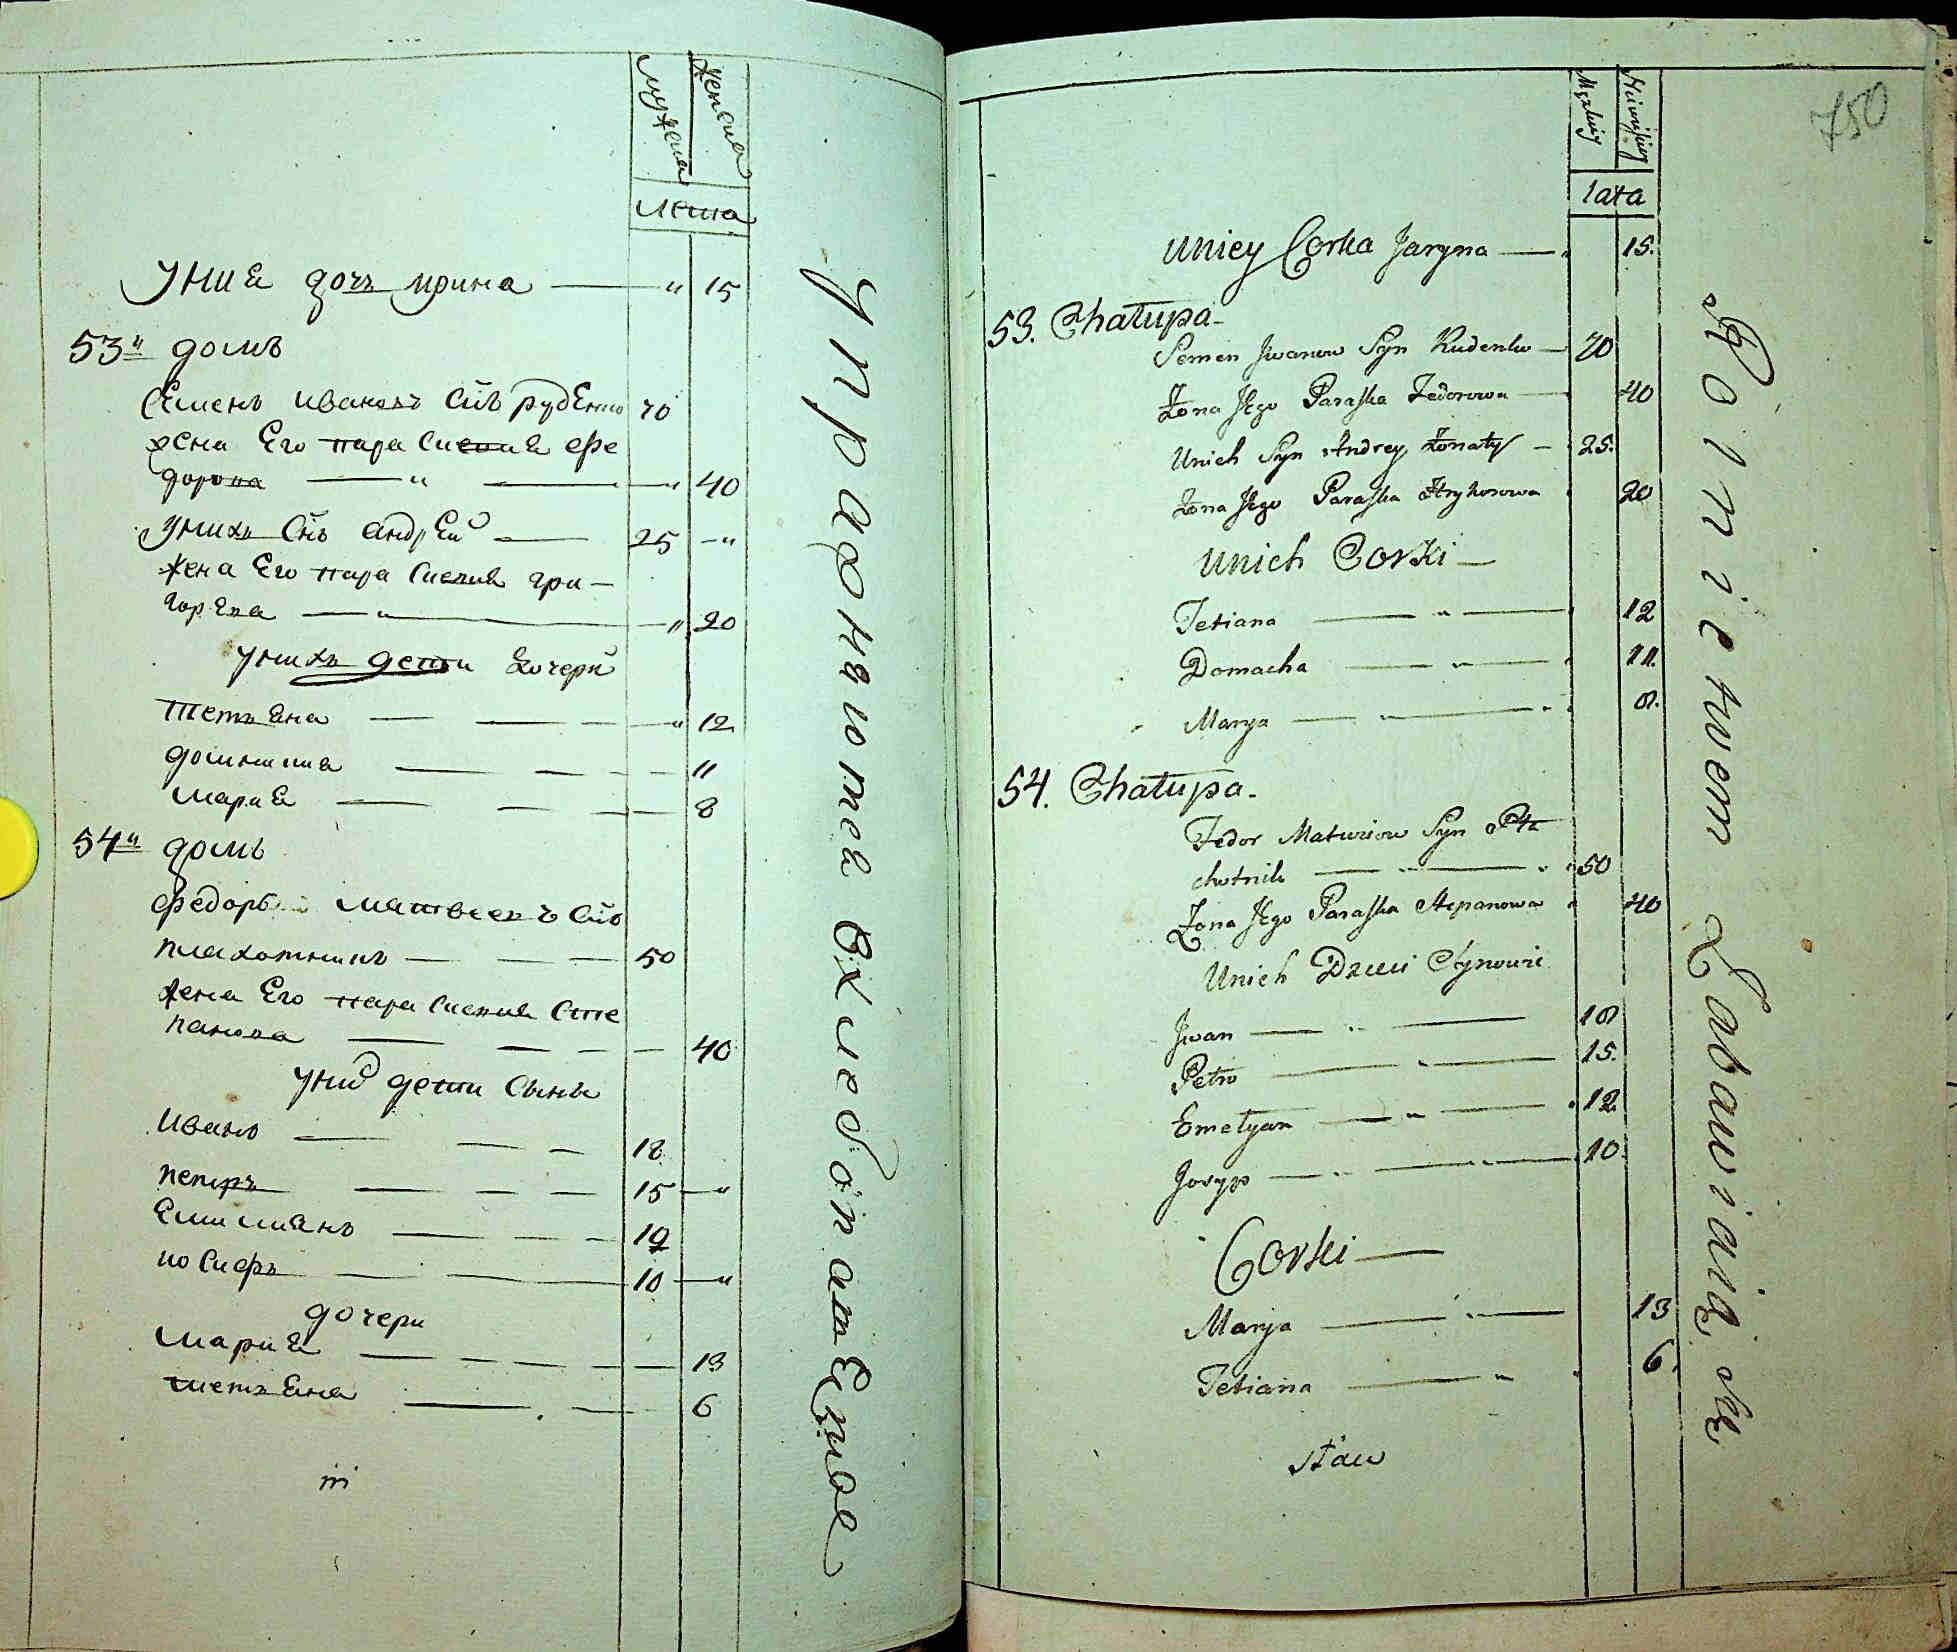 мужеска
женска
лета
У ниꙗ дочь ирина — " 15
53й домъ
Семенъ ивановъ Снъ руденко 70
жена Его параскевиꙗ фе
дорова — " — " 40
У нихъ Снъ андрей — 25 — "
жена Его параскевиꙗ гри-
горева — " — " 20
У нихъ дети дочери
Тетьꙗна — — — " 12
домникиꙗ — — — 11
мариꙗ — — — 8
54й домъ
федоръ матвеевъ Снъ
плахотникъ — — — 50
жена Его параскевиꙗ Сте
панова — — — — 40
У них дети Сыны
иванъ — — — 18
петръ — — — 15 — "
Емилиꙗнъ — — — 12
иосифъ — — 10 — "
дочери
мариꙗ — — — — — 13
тетьꙗна — . — 6
упражнѧютсѧ вхлебопашестве
750
Męzkiey
Niewieściey
lata
Uniey Corka Jaryna — 15.
53. Chałupa -
Semen Jwanow Syn Rudenko — 70
Żona Jego Paraska Fedorowa — 40
Unich Syn Andrey Żonaty — 25.
Żona Jego Paraska Hryhorowa 20
Unich Corki —
Tetiana — " — 12
Domacha — " — 11.
Marya — " — 8.
54. Chałupa -
Fedor Matwiiow Syn Pła
chotnik — — 50
Żona Jego Paraska Stepanowa 40
Unich Dzieci Synowie
Jwan — " — 18
Petro — " — 15.
Emelyan — " — 12
Josyp — " — 10.
Corki —
Marya — " — 13
Tetiana — " 6.
staw
Rolnictwem Zabawiaią się